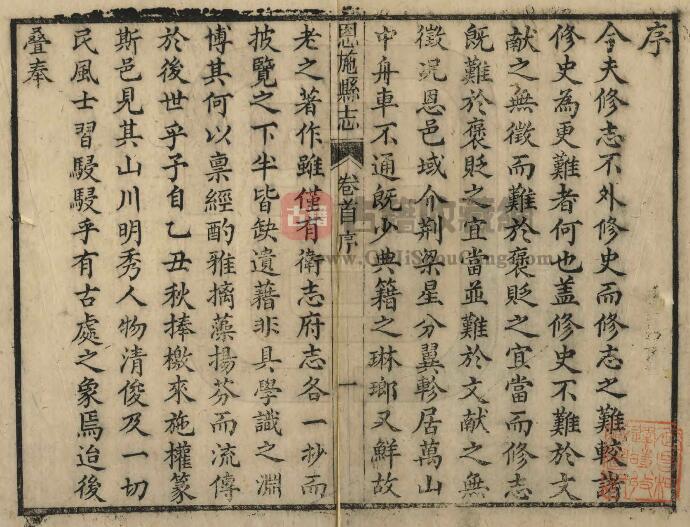 序
今夫修志不外修史而修志之難較諸
修史為更難者何也蓋修史不難於文
献之無徵而難於褒貶之宜當而修志
既難於褒貶之宜當並難於文献之無
徵況恩邑域介荆梁星分翼軫居萬山
中舟車不通既少典籍之琳瑯又鮮故
恩施縣志
卷首序
一
老之著作雖僅有衛志府志各一抄而
披覽之下半皆缺遺藉非具學識之淵
博其何以禀經酌雅摛藻揚芬而流傳
於後世乎予自乙丑秋捧檄來施權篆
斯邑見其山川明秀人物清俊及一切
民風士習駸駸乎有古處之象焉迨後
疊奉
古籍
www.GuJiShouCang.com